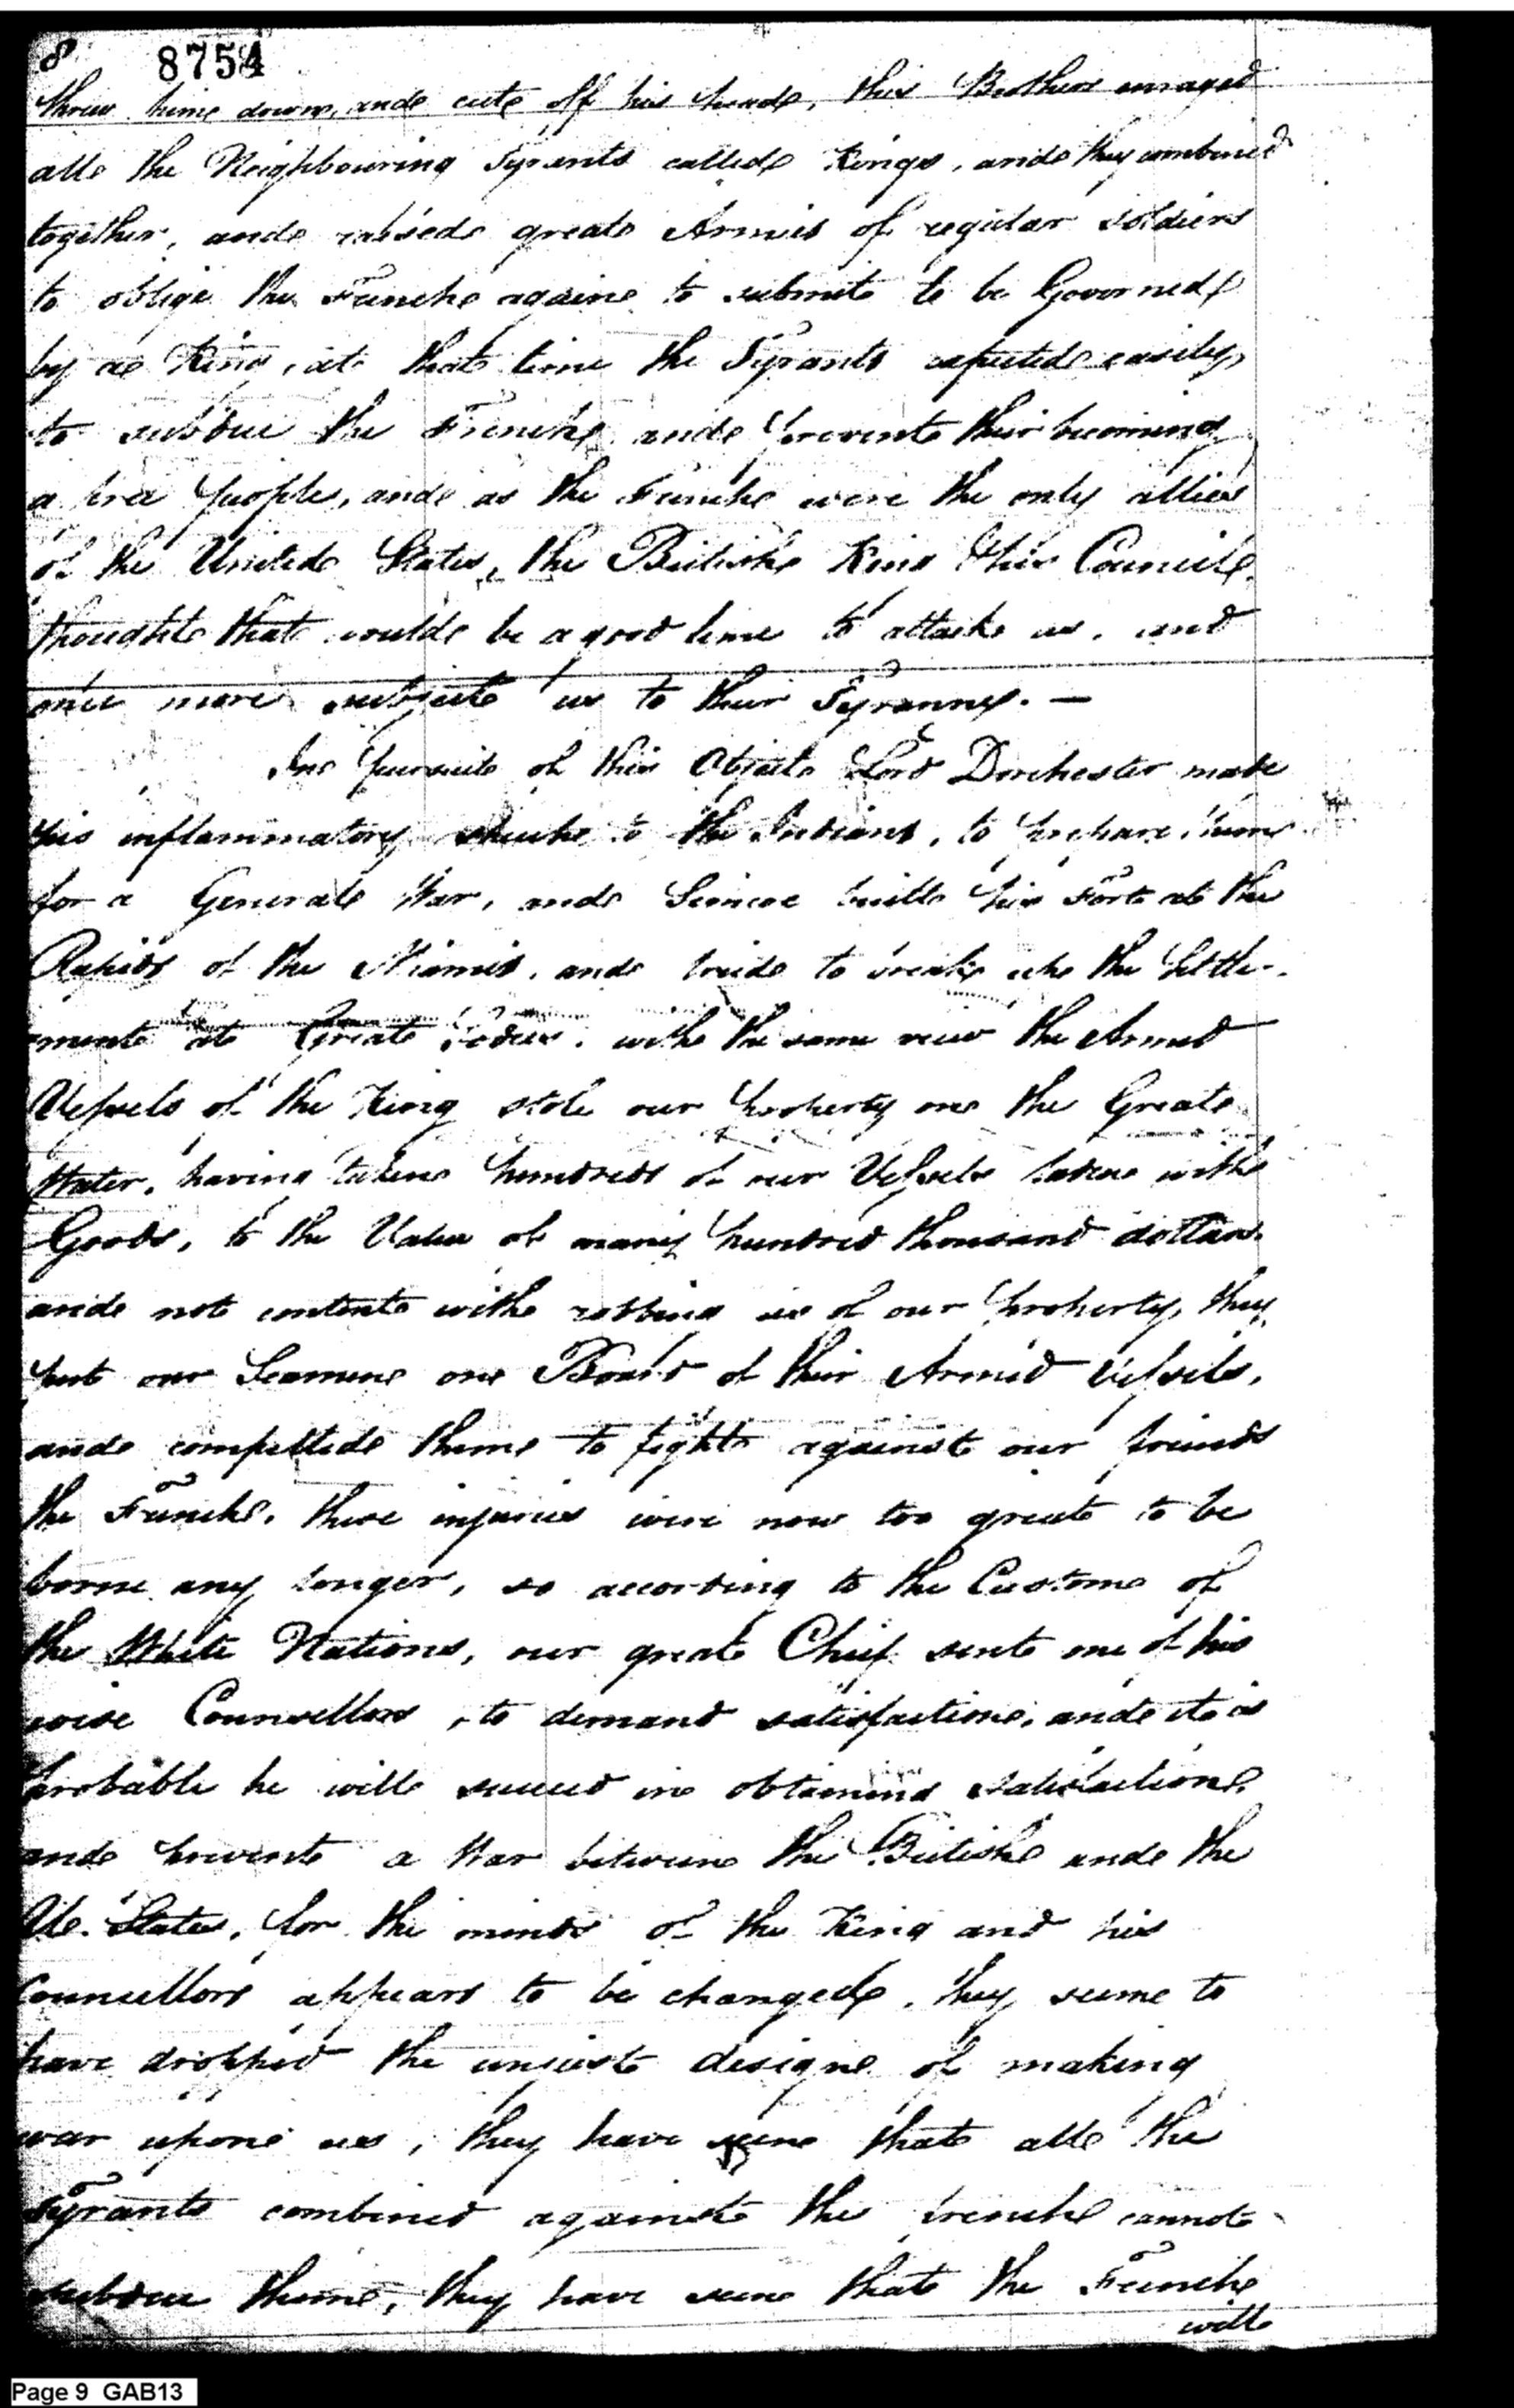 8 8754
threw him down, and cut off his head, this Brothers enraged
all the Neighbouring Tyrants called Kings, and they combined
together, and raised great Armies of regular soldiers
to oblige the French again to submit to be Governed
by a King, at that time the Tyrants expected easily
to subdue the French and prevent their becoming
a free people, and as the French were the only allies
of the United States, the British King & his Council
thought that would be a good time to attack us, and
once more subject us to their Tyranny. —
In pursuit of this Object Lord Dorchester made
his inflammatory speech to the Indians, to prepare them
for a General War, and Simcoe built his Fort at the
Rapids of the Miamis, and tried to break up the Settle-
ment at Great Sodus. with the same view the Armed
Vessels of the King stole our property on the Great
Water, having taken hundreds of our Vessels laden with
Goods, to the Value of many hundred thousand dollars
and not content with robbing us of our property, they
put our Seamen on Board of their Armed Vessels,
and compelled them to fight against our friends
the French. these injuries were now too great to be
borne any longer, so according to the Custom of
the White Nations, our great Chief sent one of his
wise Counsellors, to demand satisfaction, and it is
probable he will succeed in obtaining satisfaction,
and prevent a War between the British and the
U. States, for the minds of the King and his
Councellors appears to be changed, they seem to
have dropped the unjust design of making
war upon us, they have seen that all the
Tyrants combined against the French cannot
subdue them, they have seen that the French
will
Page 9 GAB13